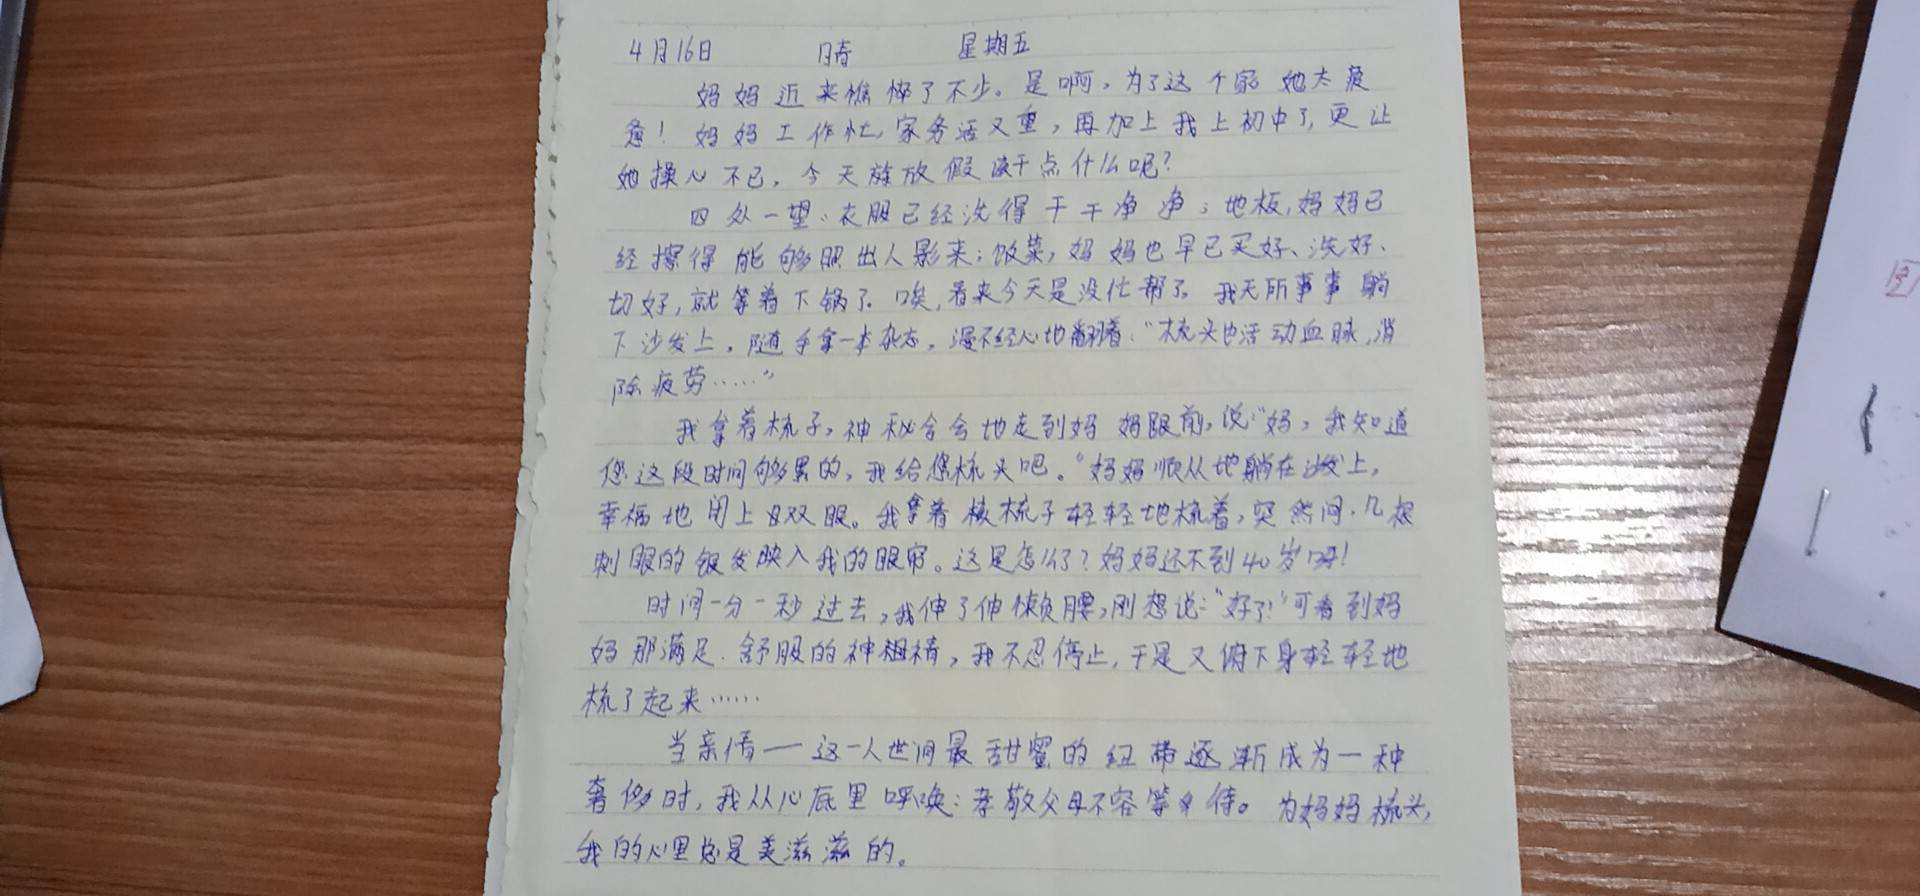 4月16日 晴 星期五
妈妈近来憔悴了不少。是啊，为了这个家她太疲
惫！妈妈工作忙，家务活又重，再加上我上初中了，更让
她操心不已，今天放假该干点什么呢？
四处一望：衣服已经洗得干干净净；地板，妈妈已
经擦得能够照出人影来；饭菜，妈妈也早已买好、洗好、
切好，就等着下锅了。唉，看来今天是没忙帮了。我无所事事躺
下沙发上，随手拿一本杂志，漫不经心地翻着：“梳头也活动血脉，消
除疲劳……”
我拿着梳子，神秘兮兮地走到妈妈跟前，说：“妈，我知道
您这段时间够累的，我给您梳头吧。”妈妈顺从地躺在沙发上，
幸福地闭上双眼。我拿着梳子轻轻地梳着，突然间，几根
刺眼的银发映入我的眼帘。这是怎么了？妈妈还不到40岁呀！
时间一分一秒过去，我伸了伸懒腰，刚想说：“好了！”可看到妈
妈那满足、舒服的神情，我不忍停止，于是又俯下身轻轻地
梳了起来……
当亲情——这一人世间最甜蜜的纽带逐渐成为一种
奢侈时，我从心底里呼唤：孝敬父母不容等待。为妈妈梳头，
我的心里总是美滋滋的。